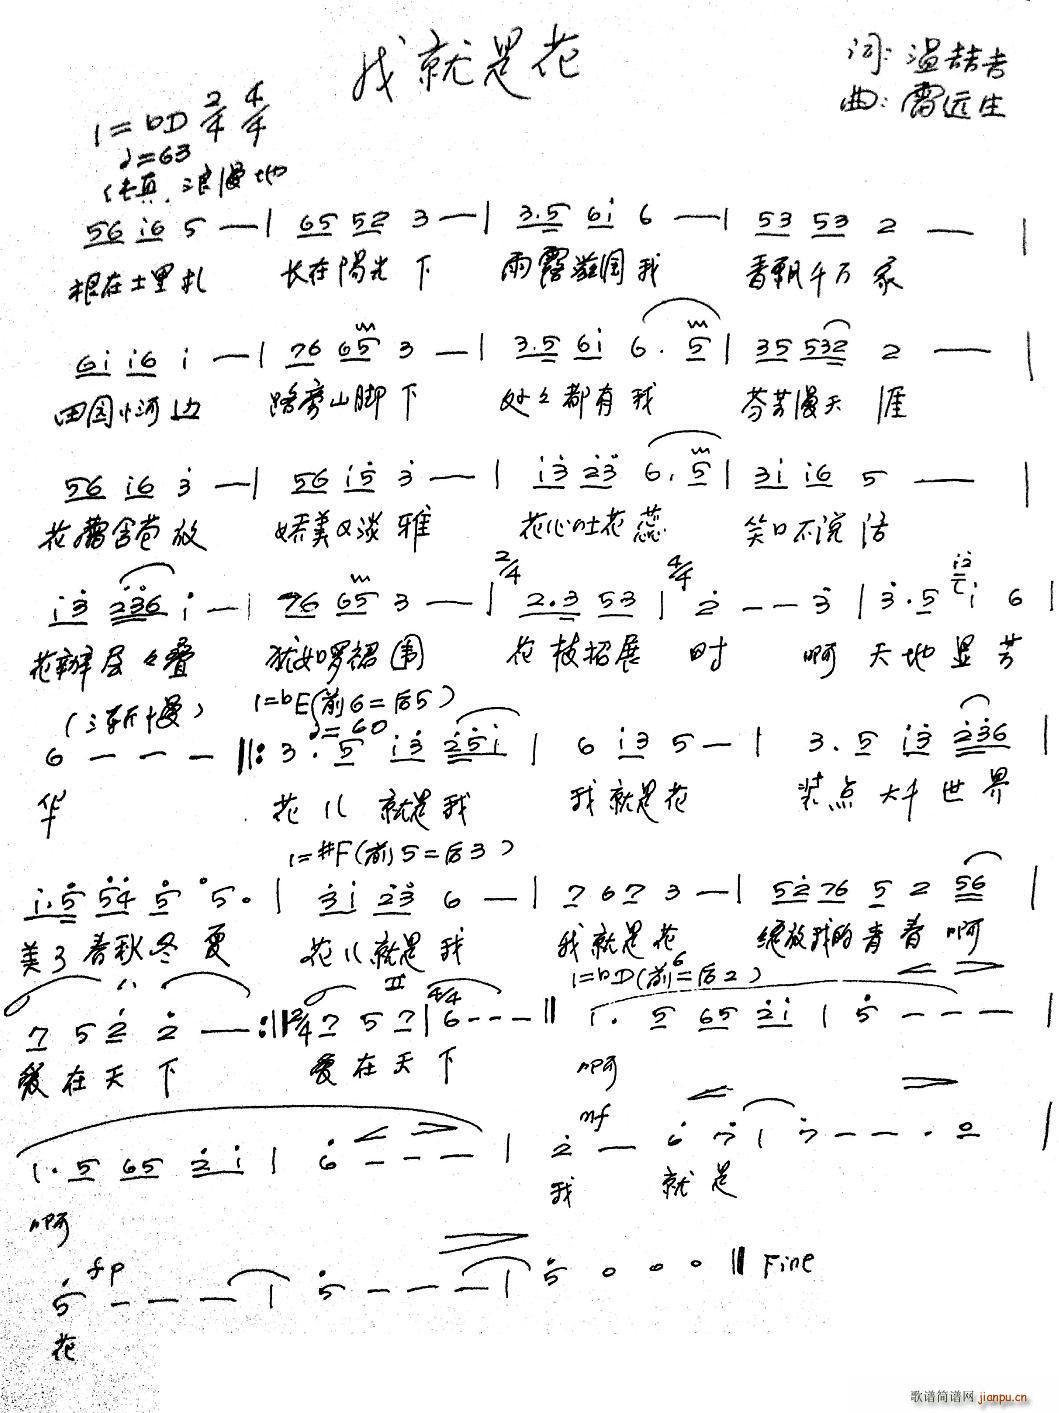 我就是花
词: 温喆吉
曲: 雷远生
1=bD 2/4 4/4
♩=63
纯真、浪漫地
56 i6 5 — | 65 52 3 — | 3.5 6i 6 — | 53 53 2 — |
根在土里扎 长在阳光下 雨露滋润我 香飘千万家
6i i6 i — | 76 65 3 — | 3.5 6i 6. 5 | 35 532 2 — |
田园小河边 路旁山脚下 处々都有我 芬芳漫天涯
56 i6 3 — | 56 i5 3 — | i3 23 6. 5 | 3i i6 5 — |
花蕾含苞放 娇美又淡雅 花心吐花蕊 笑口不说话
i3 236 i — | 76 65 3 — | 2/4 2.3 53 | 4/4 2 — — 3 | 3.5 i 6 |
花瓣层々叠 犹如罗裙围 花枝招展时 啊天地显芳
(渐慢) 1=bE(前6=后5)
♩=60
6 — — — ‖: 3. 5 i3 25i | 6 i3 5 — | 3. 5 i3 236 |
华 花儿就是我 我就是花 装点大千世界
1=#F(前5=后3)
i.5 54 5 5. | 3i 23 6 — | 7 67 3 — | 52 76 5 2 56 |
美了春秋冬夏 花儿就是我 我就是花 绽放我的青春啊
1=bD(前6=后2)
7 5 2 2 — — :‖ 2/4 7 5 7 | 4/4 6 - - - ‖ 1. 5 65 2i | 5 — — — |
爱在天下 爱在天下 啊
1. 5 65 2 i | 6 — — — | 2 — 6 7 | 7 — — . 0 |
mf
啊 我 就是
fp
5 — — — | 5 — — — | 5 0 0 0 ‖ Fine
花
歌谱简谱网 jianpu.cn